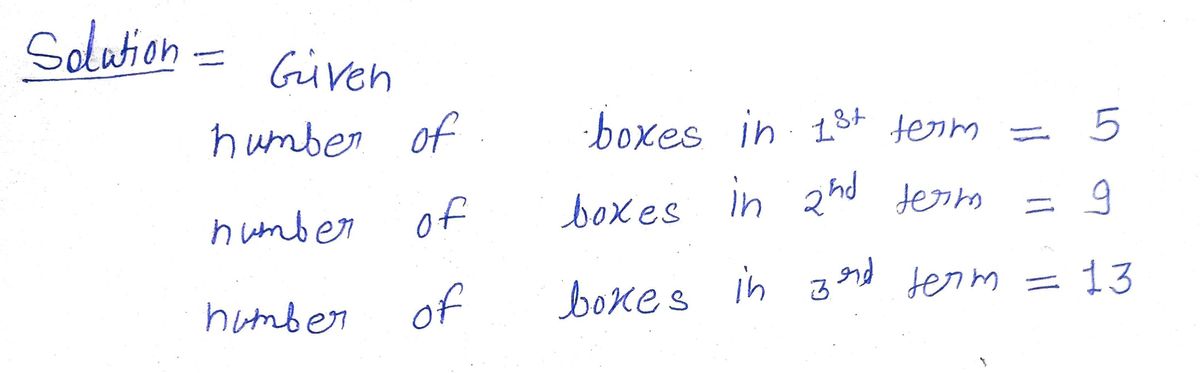 Solution =
Given
number of boxes in 1st term = 5
number of boxes in 2nd term = 9
number of boxes in 3rd term = 13